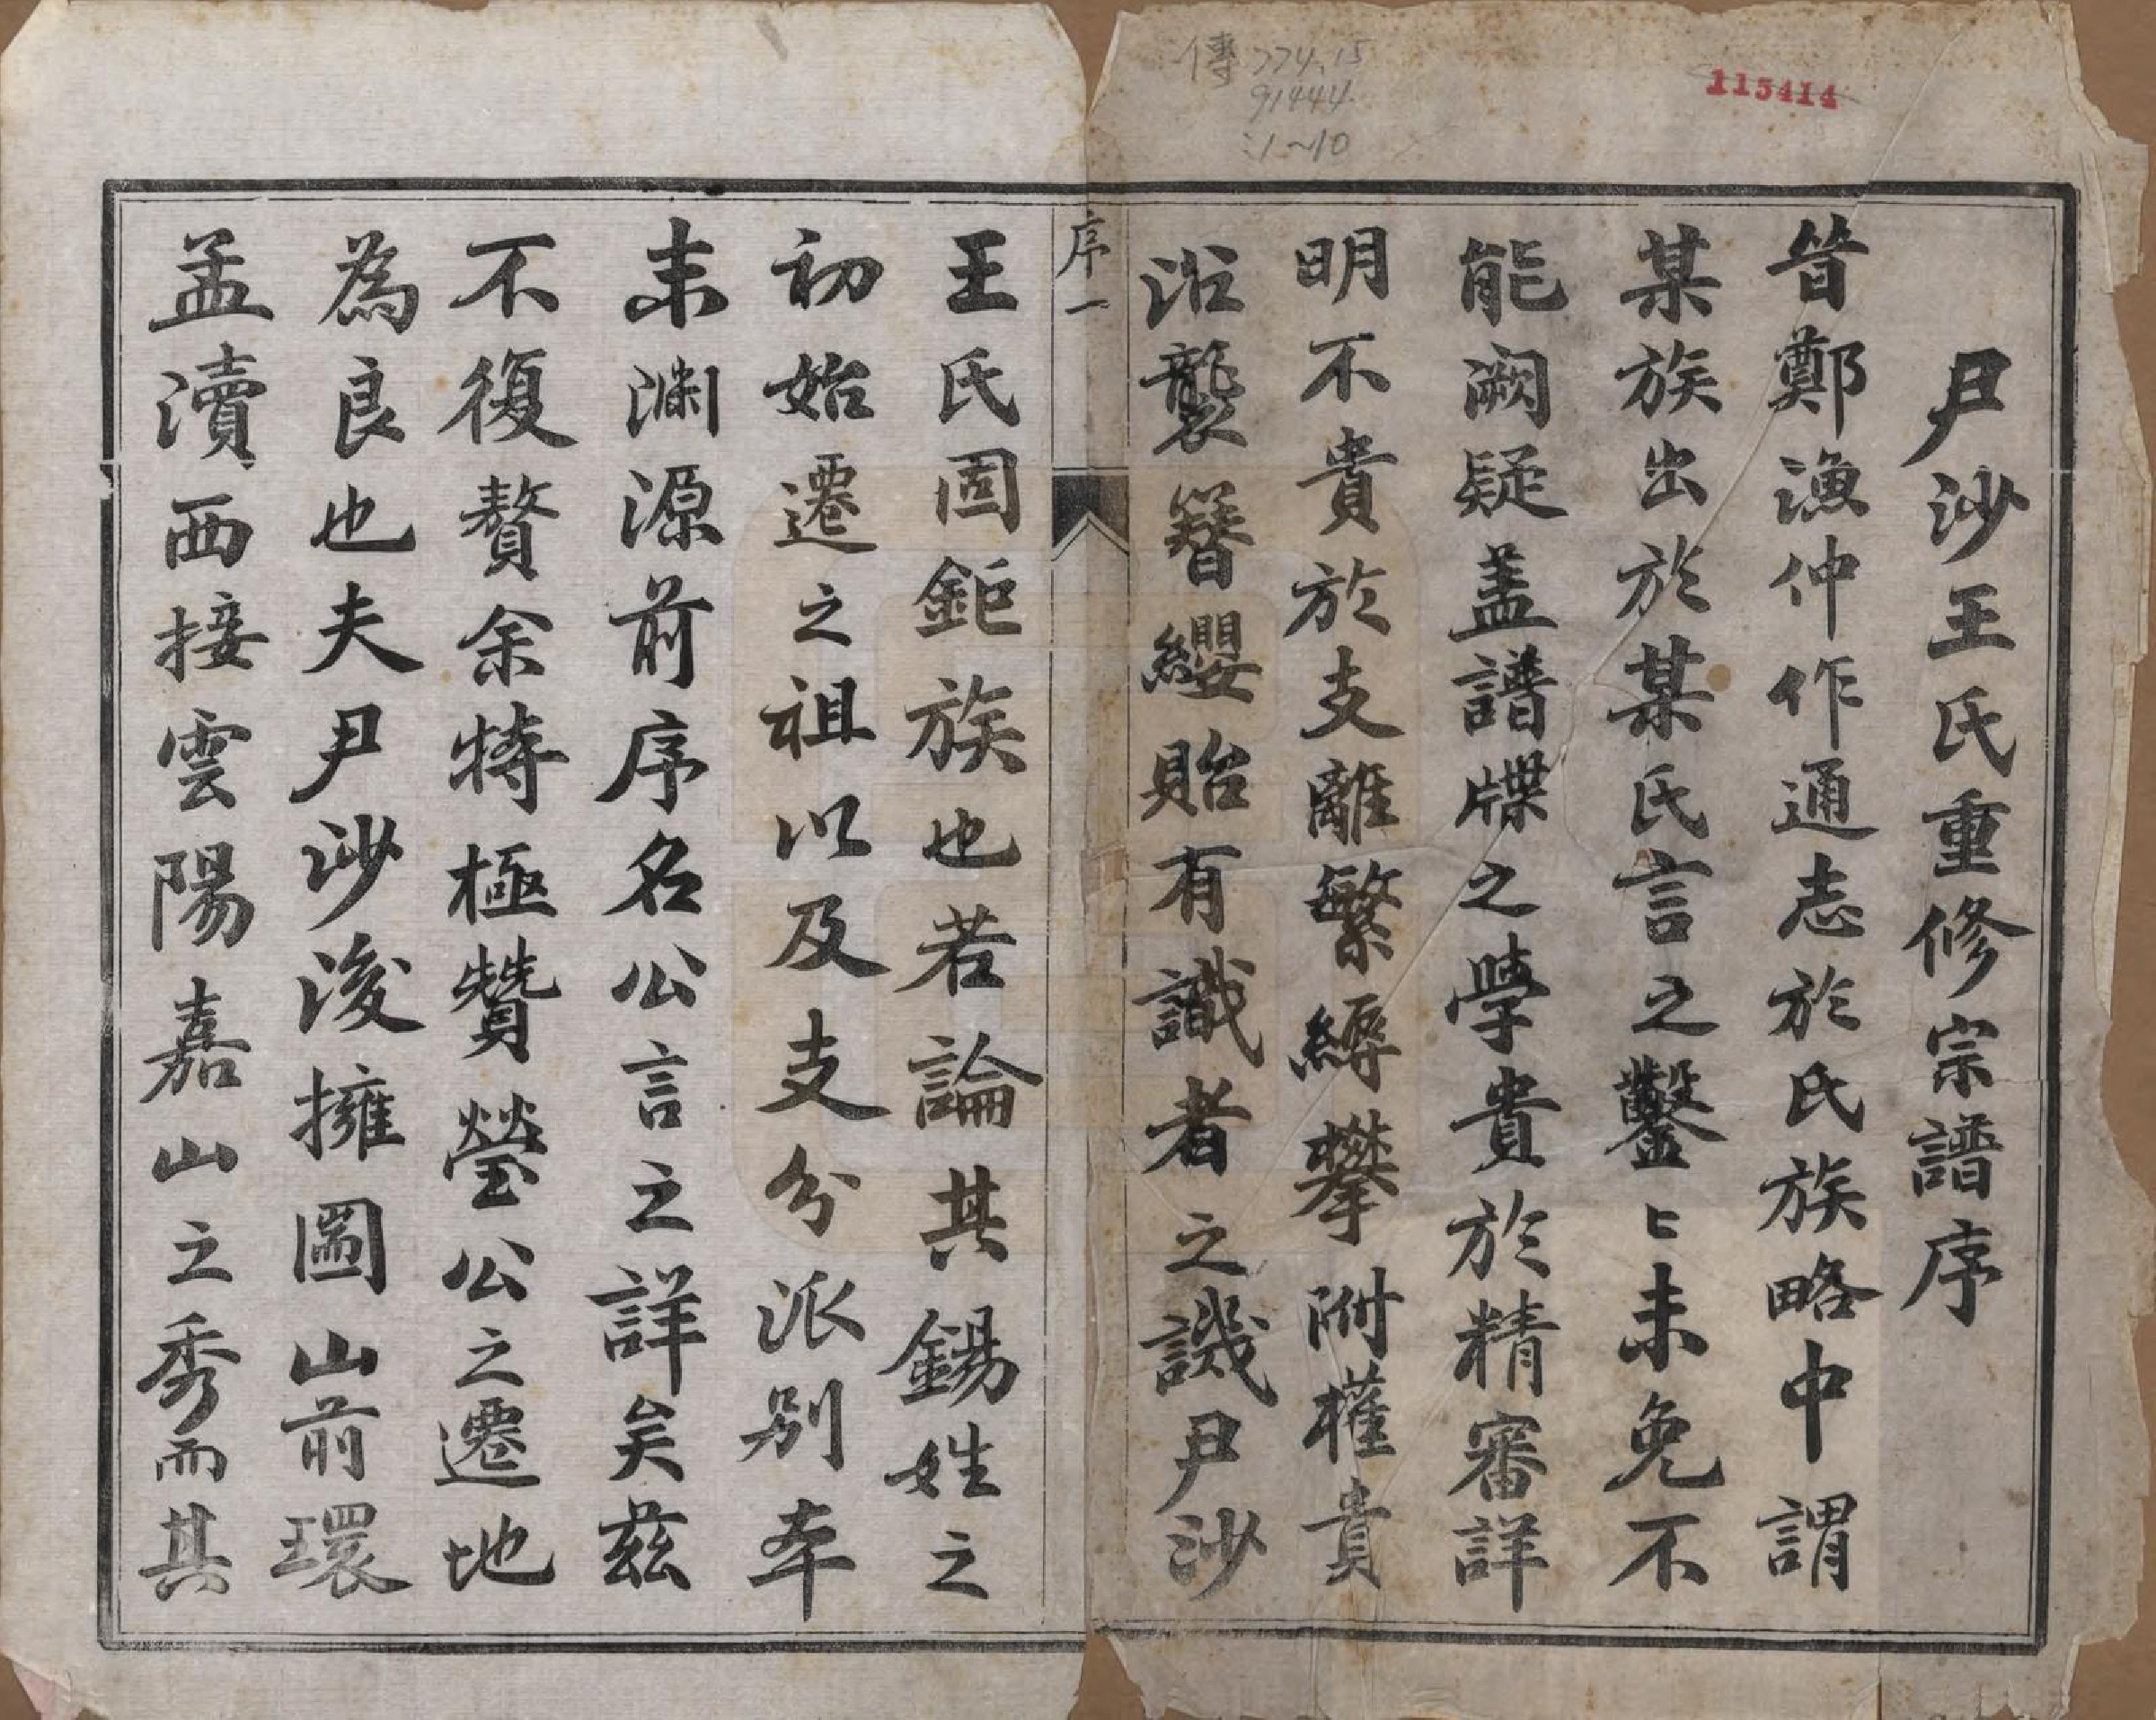 傳774.15
91444
:1~10
115414
尹沙王氏重修宗譜序
昔鄭漁仲作通志於氏族略中謂
某族出於某氏言之鑿〻未免不
能闕疑盖譜牒之學貴於精審詳
明不貴於支離繁縟攀附權貴
沿襲簪纓貽有識者之譏尹沙
序一
王氏固鉅族也若論其錫姓之
初始遷之祖以及支分派别本
末淵源前序名公言之詳矣茲
不復贅余特極贊瑩公之遷地
為良也夫尹沙後擁圌山前環
孟瀆西接雲陽嘉山之秀而其